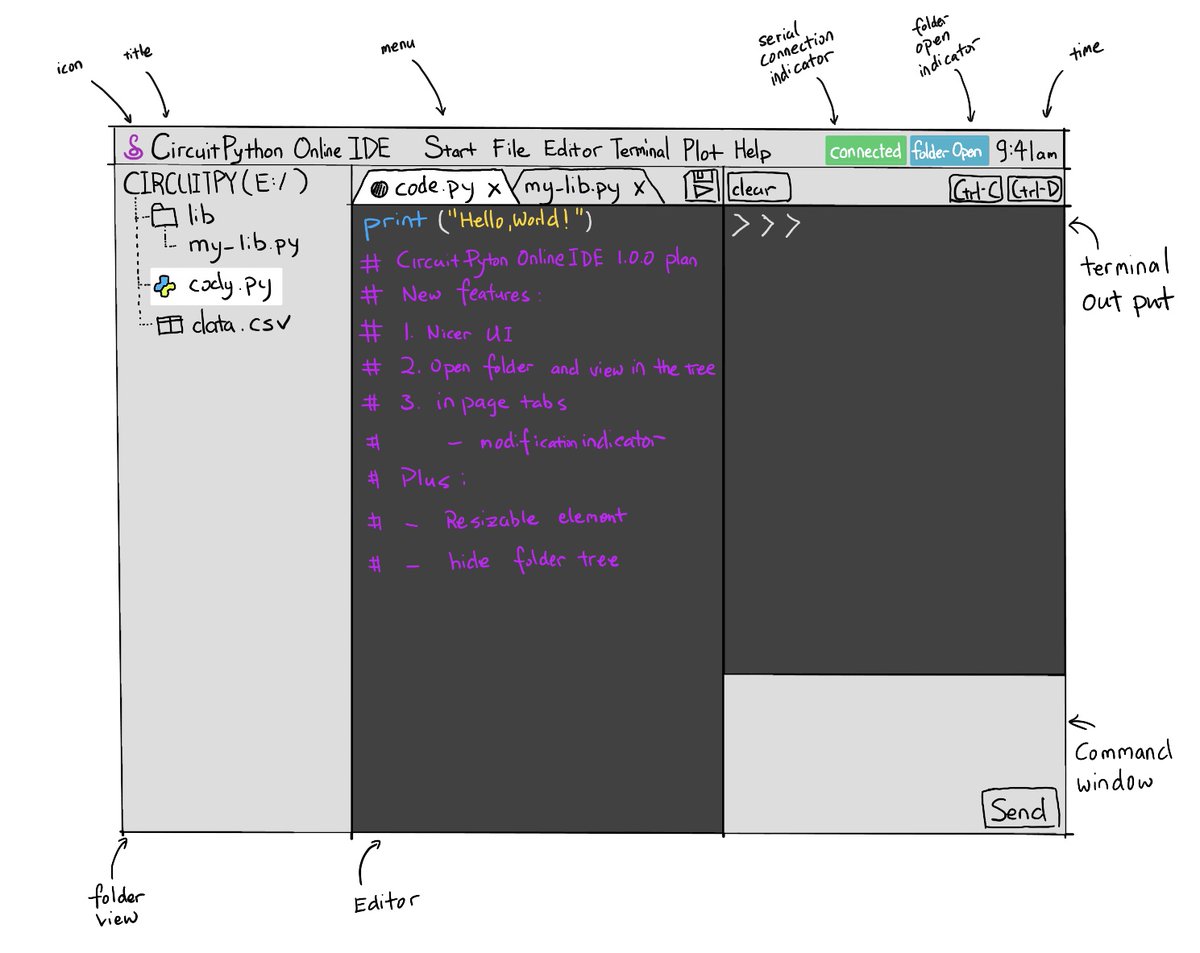 icon
title
menu
serial
connection
indicator
folder
open
indicator
time
CircuitPython Online IDE Start File Editor Terminal Plot Help connected folder Open 9:41am
CIRCUITPY(E:/)
lib
my-lib.py
cody.py
data.csv
code.py x my-lib.py x
clear Ctrl-C Ctrl-D
print ("Hello,World!")
# Circuit Pyton Online IDE 1.0.0 plan
# New features:
# 1. Nicer UI
# 2. Open folder and view in the tree
# 3. in page tabs
# - modification indicator
# Plus:
# - Resizable element
# - hide folder tree
>>>
terminal
out put
Command
window
Send
folder
view
Editor